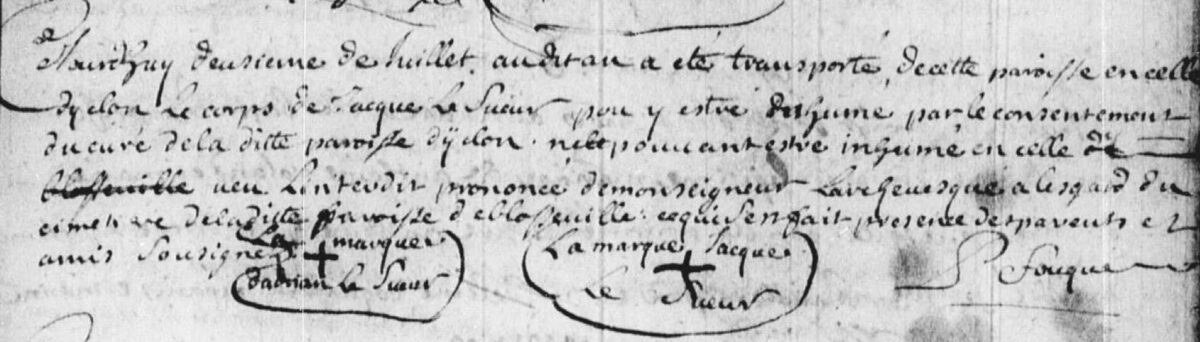 Jourdhuy deusieme de Juillet audit an a eté transporté de cette paroisse en celle
dyclon Le corps de Jacque Le Sueur pou y estre inhumé par le consentement
du curé de la ditte paroisse dyclon ne pouvant estre inhumé en celle de
blosseuille veu Linterdit prononcé de monseigneur Larchevesque a lesgard du
cimetire de la ditte paroisse de blosseuille ce qui sen fait presence des parents et
amis sousignes La marque dadrian Le Sueur La marque Jacque Le Sueur P Fouque